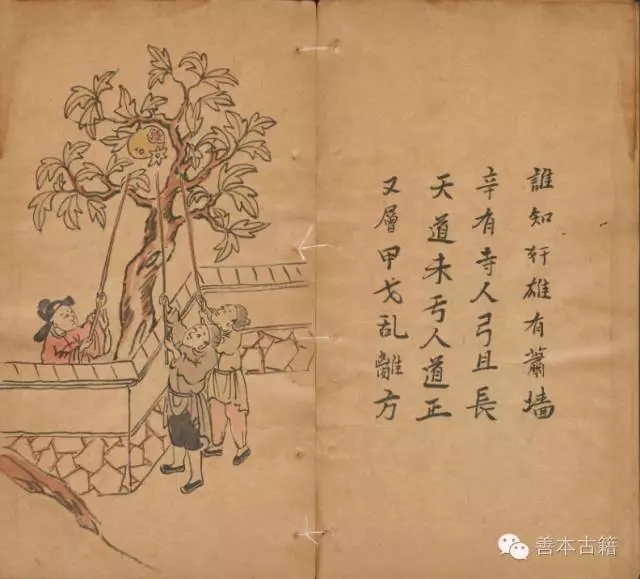 誰知雄有蕭墻
辛有寺人弓且長
天道未亏人道正
又層甲戈乱離方
善本古籍